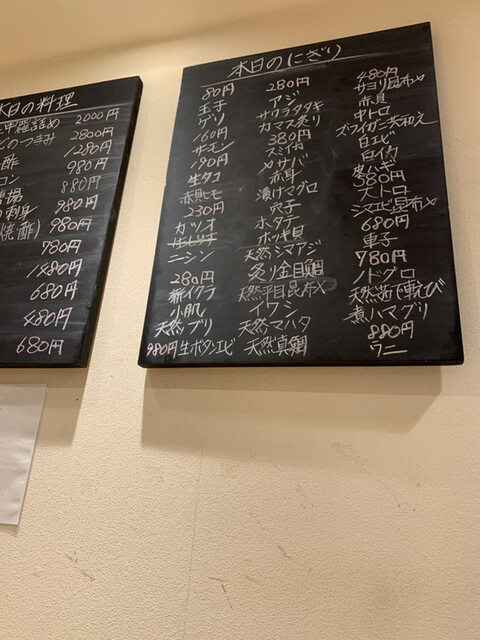 本日の料理
甲羅詰め 2000円
のつまみ 2800円
1280円
酢 980円
880円
980円
焼酢) 980円
780円
1480円
680円
480円
680円
本日のにぎり
80円
玉子
ゲソ
160円
サーモン
190円
生タコ
赤貝ヒモ
230円
カツオ
ニシン
280円
新イクラ
小肌
天然ブリ
980円 生ボタンエビ
280円
アジ
サワラタタキ
カマス炙り
380円
スミイカ
〆サバ
赤耳
漬けマグロ
穴子
ホタテ
ホッキ貝
天然シマアジ
炙り金目鯛
天然平目昆布〆
イワシ
天然マハタ
天然真鯛
480円
サヨリ昆布〆
赤貝
中トロ
ズワイガニ
白エビ
白イカ
580円
大トロ
シマエビ昆布〆
680円
車子
780円
ノドグロ
煮ハマグリ
880円
ウニ